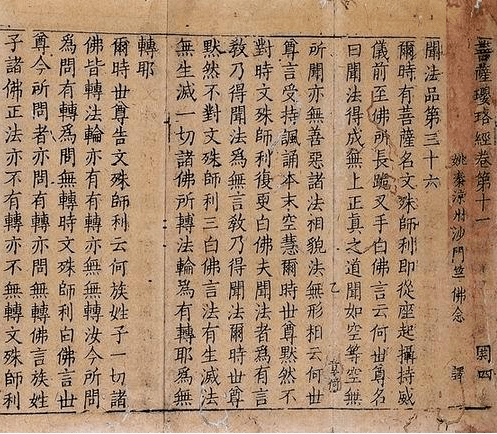 菩薩瓔珞經卷第十一 罔四
姚秦涼州沙門竺佛念 譯
聞法品第三十六
爾時有菩薩名文殊師利即從座起攝持威
儀前至佛所長跪叉手白佛言云何世尊名
曰聞法得成無上正真之道聞如空等空無
所聞亦無善惡諸法相貌法無形相云何世
尊言受持諷誦本末空慧爾時世尊默然不
對時文殊師利復更白佛夫聞法者為有言
教乃得聞法為無言教乃得聞法爾時世尊
默然不對文殊師利三白佛言法有生滅法
無生滅一切諸佛所轉法輪為有轉耶為無
轉耶
爾時世尊告文殊師利云何族姓子一切諸
佛皆轉法輪亦有有轉亦無無轉汝今所問
為問有轉為問無轉時文殊師利白佛言世
尊今所問者亦問有轉亦問無轉佛言族姓
子諸佛正法亦不有轉亦不無轉文殊師利